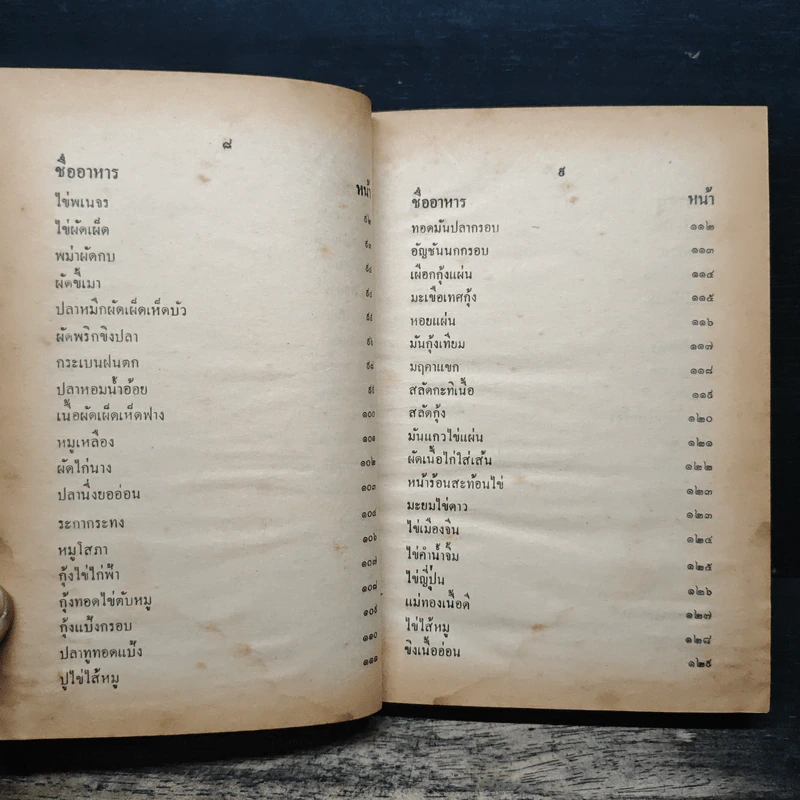 ๘
ชื่ออาหาร หน้า
ไข่พเนจร ๙๒
ไข่ผัดเผ็ด
พม่าผัดกบ
ผัดขี้เมา
ปลาหมึกผัดเผ็ดเห็ดบัว
ผัดพริกขิงปลา
กระเบนฝนตก
ปลาหอมน้ำอ้อย ๙๙
เนื้อผัดเผ็ดเห็ดฟาง ๑๐๐
หมูเหลือง ๑๐๑
ผัดไก่นาง ๑๐๒
ปลานึ่งยออ่อน ๑๐๓
ระกากระทง ๑๐๔
หมูโสภา ๑๐๖
กุ้งไข่ไก่ฟ้า ๑๐๗
กุ้งทอดไข่ตับหมู ๑๐๘
กุ้งแป้งกรอบ ๑๐๙
ปลาทูทอดแป้ง ๑๑๐
ปูไข่ไส้หมู ๑๑๑
๙
ชื่ออาหาร หน้า
ทอดมันปลากรอบ ๑๑๒
อัญชันนกกรอบ ๑๑๓
เผือกกุ้งแผ่น ๑๑๔
มะเขือเทศกุ้ง ๑๑๕
หอยแผ่น ๑๑๖
มันกุ้งเทียม ๑๑๗
มฤคาแขก ๑๑๘
สลัดกะทิเนื้อ ๑๑๙
สลัดกุ้ง ๑๒๐
มันแกวไข่แผ่น ๑๒๑
ผัดเนื้อไก่ใส่เส้น ๑๒๒
หน้าร้อนสะท้อนไข่ ๑๒๓
มะยมไข่ดาว ๑๒๓
ไข่เมืองจีน ๑๒๔
ไข่คำน้ำจิ้ม ๑๒๕
ไข่ญี่ปุ่น ๑๒๖
แม่ทองเนื้อดี ๑๒๗
ไข่ไส้หมู ๑๒๘
ขิงเนื้ออ่อน ๑๒๙